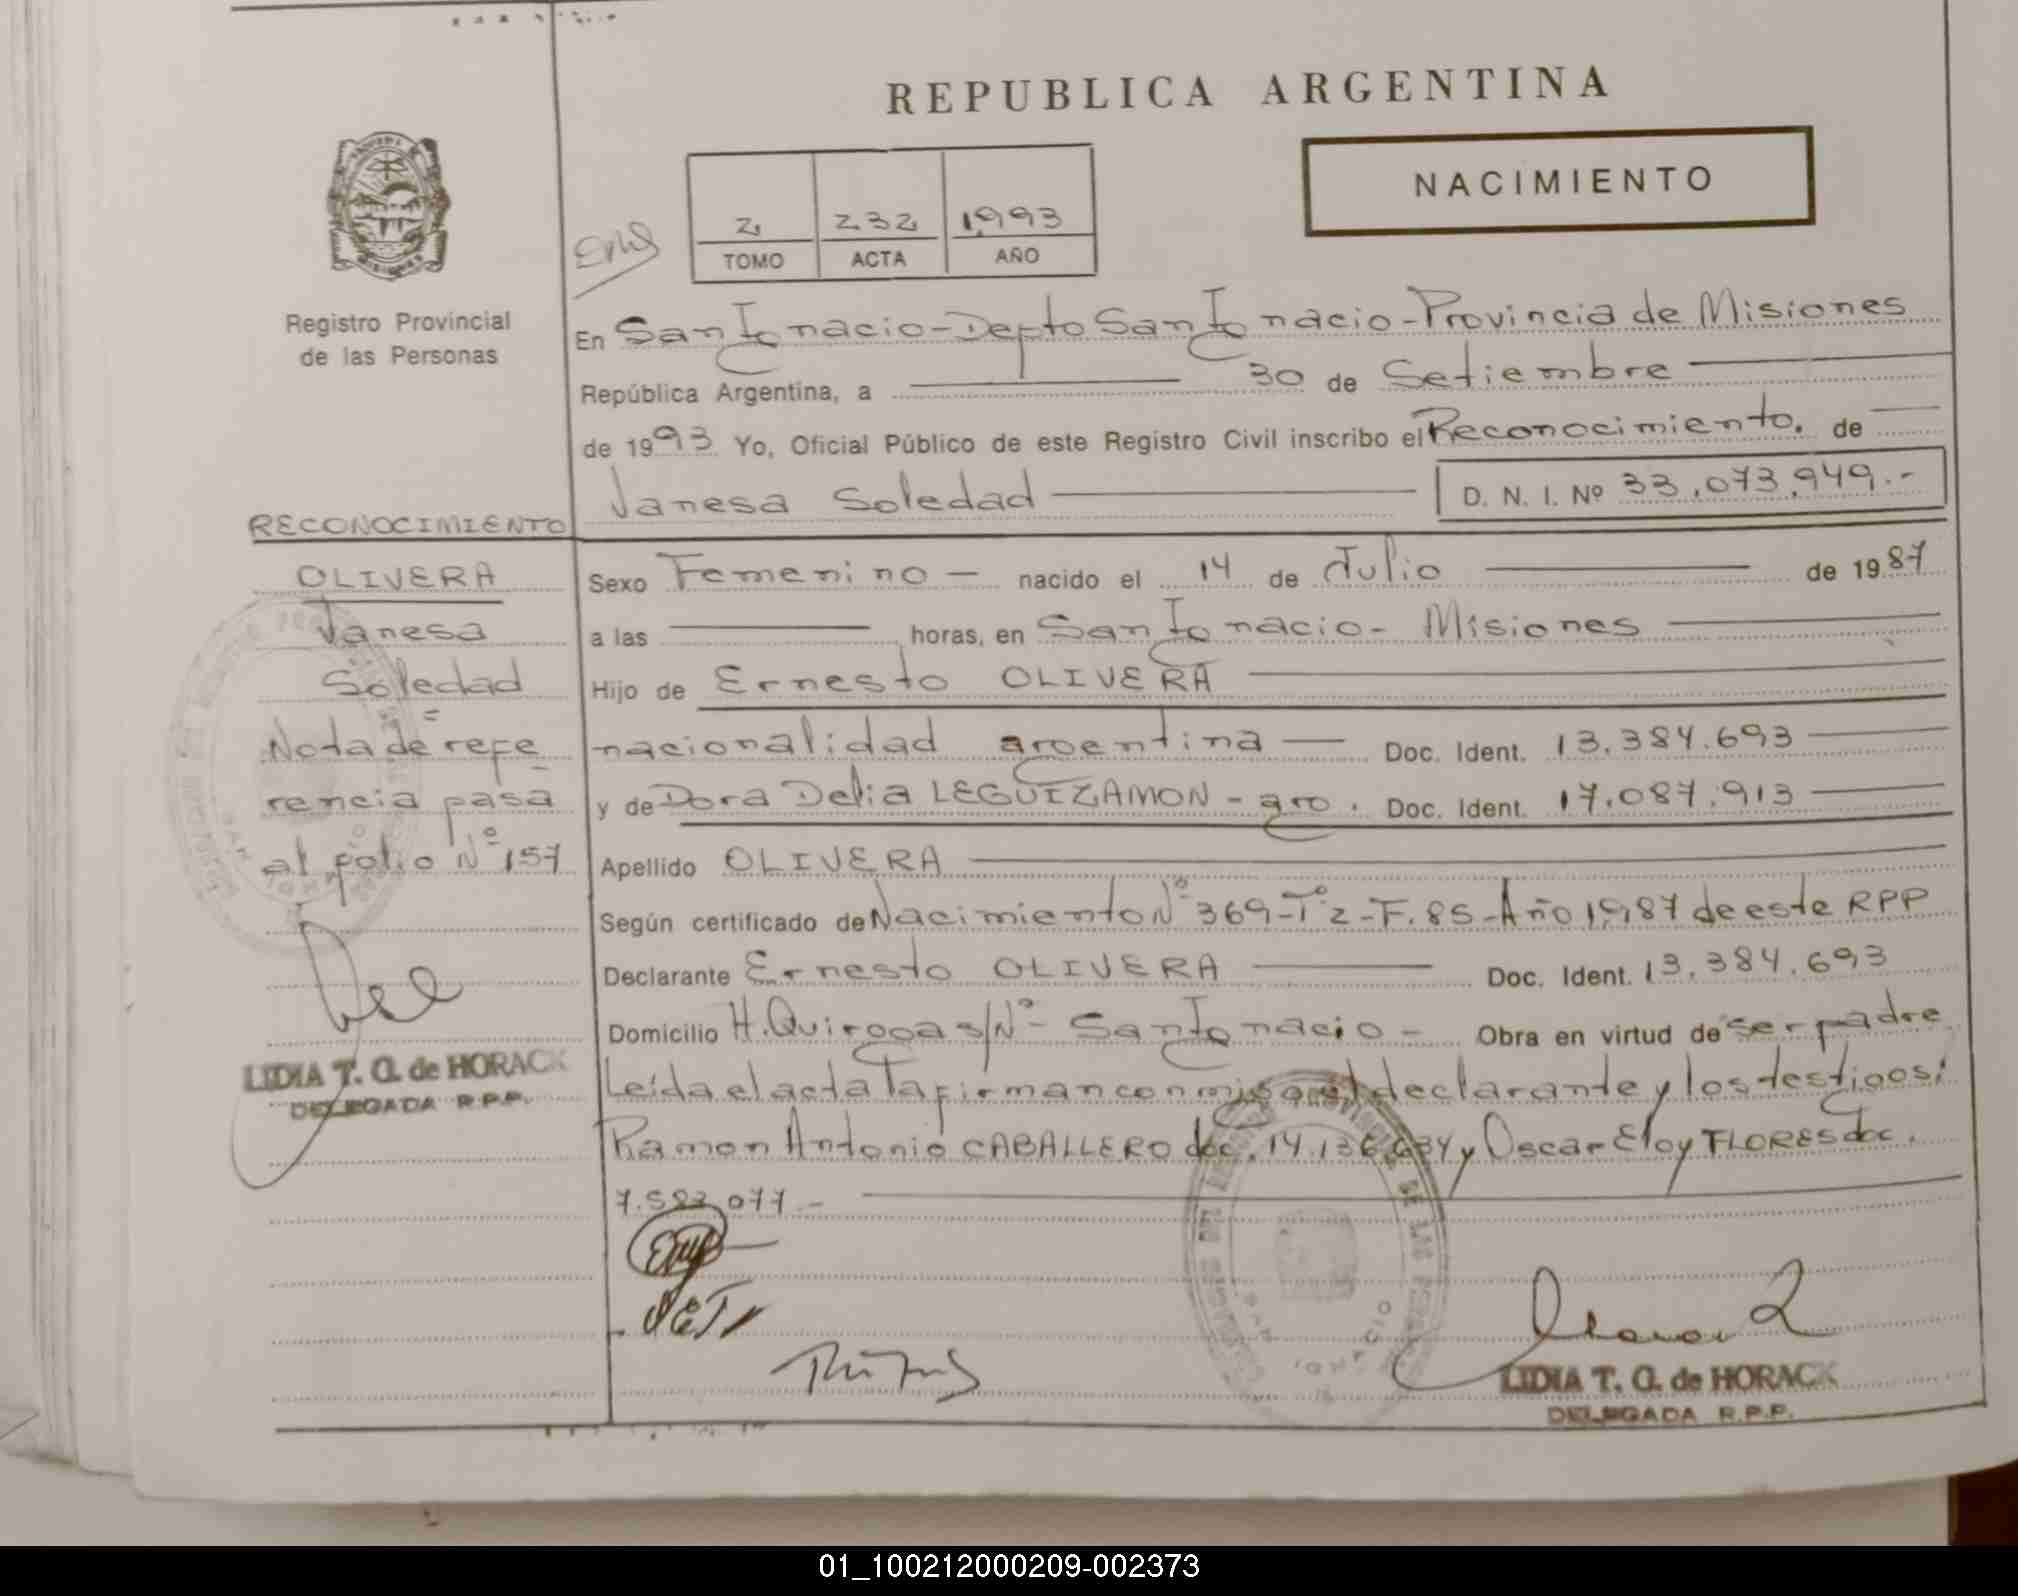 REPUBLICA ARGENTINA
NACIMIENTO
2 232 1993
TOMO ACTA AÑO
Registro Provincial
de las Personas
En San Ignacio - Depto San Ignacio - Provincia de Misiones
República Argentina, a 30 de Setiembre
de 1993 Yo, Oficial Público de este Registro Civil inscribo el Reconocimiento. de
Vanesa Soledad D. N. I. Nº 33.073.949.-
RECONOCIMIENTO
OLIVERA
Vanesa
Soledad
Nota de refe
rencia pasa
al folio Nº 157
LIDIA T. G. de HORACK
DELEGADA R.P.P.
Sexo Femenino - nacido el 14 de Julio de 1987
a las horas, en San Ignacio - Misiones
Hijo de Ernesto OLIVERA
nacionalidad argentina Doc. Ident. 13.384.693
y de Dora Delia LEGUIZAMON - arg. Doc. Ident. 17.087.913
Apellido OLIVERA
Según certificado de Nacimiento Nº 369 - Tº 2 - F. 85 - Año 1987 de este RPP
Declarante Ernesto OLIVERA Doc. Ident. 13.384.693
Domicilio H. Quiroga s/Nº - San Ignacio - Obra en virtud de ser padre
Leída el acta la firman conmigo el declarante y los testigos:
Ramon Antonio CABALLERO doc. 14.136.634 y Oscar Eloy FLORES doc.
7.583.077.-
SAN IGNACIO
LIDIA T. G. de HORACK
DELEGADA R.P.P.
01_100212000209-002373